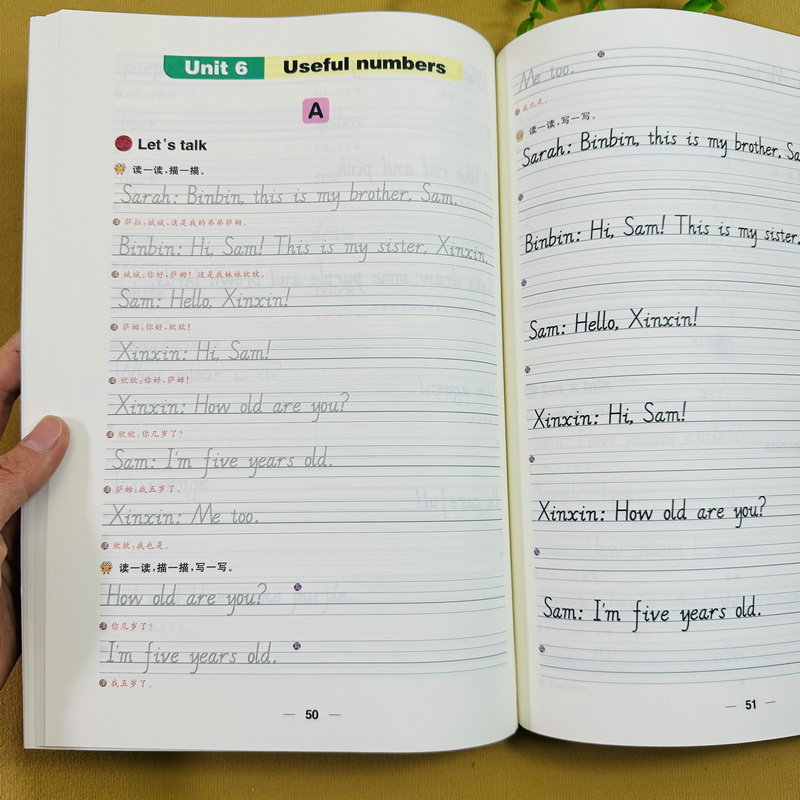 Unit 6 Useful numbers
A
Let's talk
读一读,描一描。
Sarah: Binbin, this is my brother, Sam.
萨拉:斌斌,这是我的弟弟萨姆。
Binbin: Hi, Sam! This is my sister, Xinxin.
斌斌:你好,萨姆!这是我妹妹欣欣。
Sam: Hello, Xinxin!
萨姆:你好,欣欣!
Xinxin: Hi, Sam!
欣欣:你好,萨姆!
Xinxin: How old are you?
欣欣:你几岁了?
Sam: I'm five years old.
萨姆:我五岁了。
Xinxin: Me too.
欣欣:我也是。
读一读,描一描,写一写。
How old are you?
你几岁了?
I'm five years old.
我五岁了。
50
Me too.
我也是。
读一读,写一写。
Sarah: Binbin, this is my brother, Sa
Binbin: Hi, Sam! This is my sister,
Sam: Hello, Xinxin!
Xinxin: Hi, Sam!
Xinxin: How old are you?
Sam: I'm five years old.
51